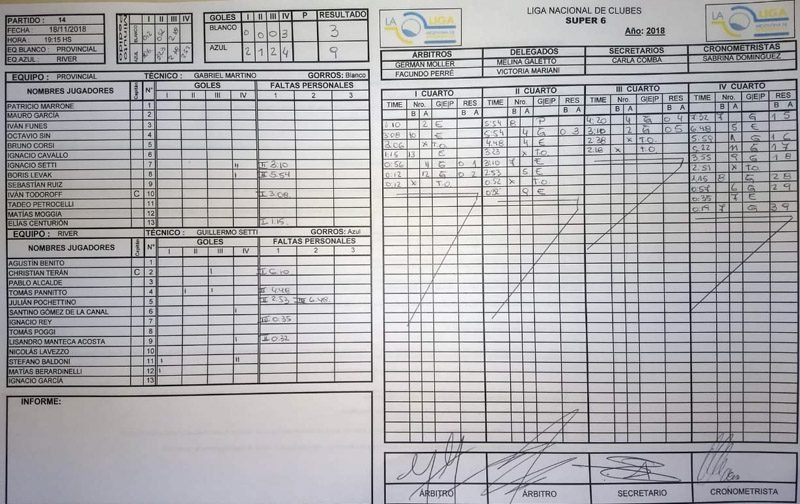 PARTIDO : 14
FECHA : 18/11/2018
HORA : 19:15 HS
EQ.BLANCO : PROVINCIAL
EQ.AZUL : RIVER
I II III IV
BLANCO
AZUL
GOLES I II III IV P RESULTADO
BLANCO 0 0 0 3 3
AZUL 2 1 2 4 9
LIGA NACIONAL DE CLUBES
SUPER 6
Año: 2018
LA LIGA
ARBITROS DELEGADOS SECRETARIOS CRONOMETRISTAS
GERMAN MOLLER MELINA GALETTO CARLA COMBA SABRINA DOMINGUEZ
FACUNDO PERRÉ VICTORIA MARIANI
EQUIPO : PROVINCIAL TÉCNICO : GABRIEL MARTINO GORROS: Blanco
NOMBRES JUGADORES Capitán N° GOLES FALTAS PERSONALES
I II III IV 1 2 3
PATRICIO MARRONE 1
MAURO GARCÍA 2
IVÁN FUNES 3
OCTAVIO SIN 4
BRUNO CORSI 5
IGNACIO CAVALLO 6
IGNACIO SETTI 7 II 3.10
BORIS LEVAK 8 II 5.54
SEBASTIÁN RUIZ 9
IVÁN TODOROFF C 10 I 3.08
TADEO PETROCELLI 11
MATÍAS MOGGIA 12
ELÍAS CENTURIÓN 13 I 1.15
EQUIPO : RIVER TÉCNICO : GUILLERMO SETTI GORROS: Azul
NOMBRES JUGADORES Capitán N° GOLES FALTAS PERSONALES
I II III IV 1 2 3
AGUSTÍN BENITO 1
CHRISTIAN TERÁN C 2
PABLO ALCALDE 3
TOMÁS PANNITTO 4 II 4.48
JULIÁN POCHETTINO 5 II 2.53 IV 6.48
SANTINO GÓMEZ DE LA CANAL 6
IGNACIO REY 7 0.35
TOMÁS POGGI 8
LISANDRO MANTECA ACOSTA 9 II 0.32
NICOLÁS LAVEZZO 10
STEFANO BALDONI 11
MATÍAS BERARDINELLI 12
IGNACIO GARCÍA 13
INFORME:
I CUARTO II CUARTO III CUARTO IV CUARTO
TIME Nro. G|E|P RES TIME Nro. G|E|P RES TIME Nro. G|E|P RES TIME Nro. G|E|P RES
B A B A B A B A B A B A B A B A
2 E 5:54 8 P 4:20 4 G 0 4 7.32 7 G 1 5
3:08 10 E 5.54 4 G 0 3 3:10 2 G 0 5 6.48 5 E
3.06 x T.O. 4.48 4 E 2.38 x T.O. G 1 6
1:15 13 E 3.23 x T.O. x T.O. 5.22 11 G 1 7
0.56 G 0 1 3.10 7 E 3.55 9 G 1 8
0.12 12 G 0 2 2.53 5 E 2.51 x T.O.
0.12 x T.O. 0.52 x T.O. 8 G 2 8
9 E 6 G 2 9
0:35 7 E
7 G 3 9
ARBITRO ARBITRO SECRETARIO CRONOMETRISTA